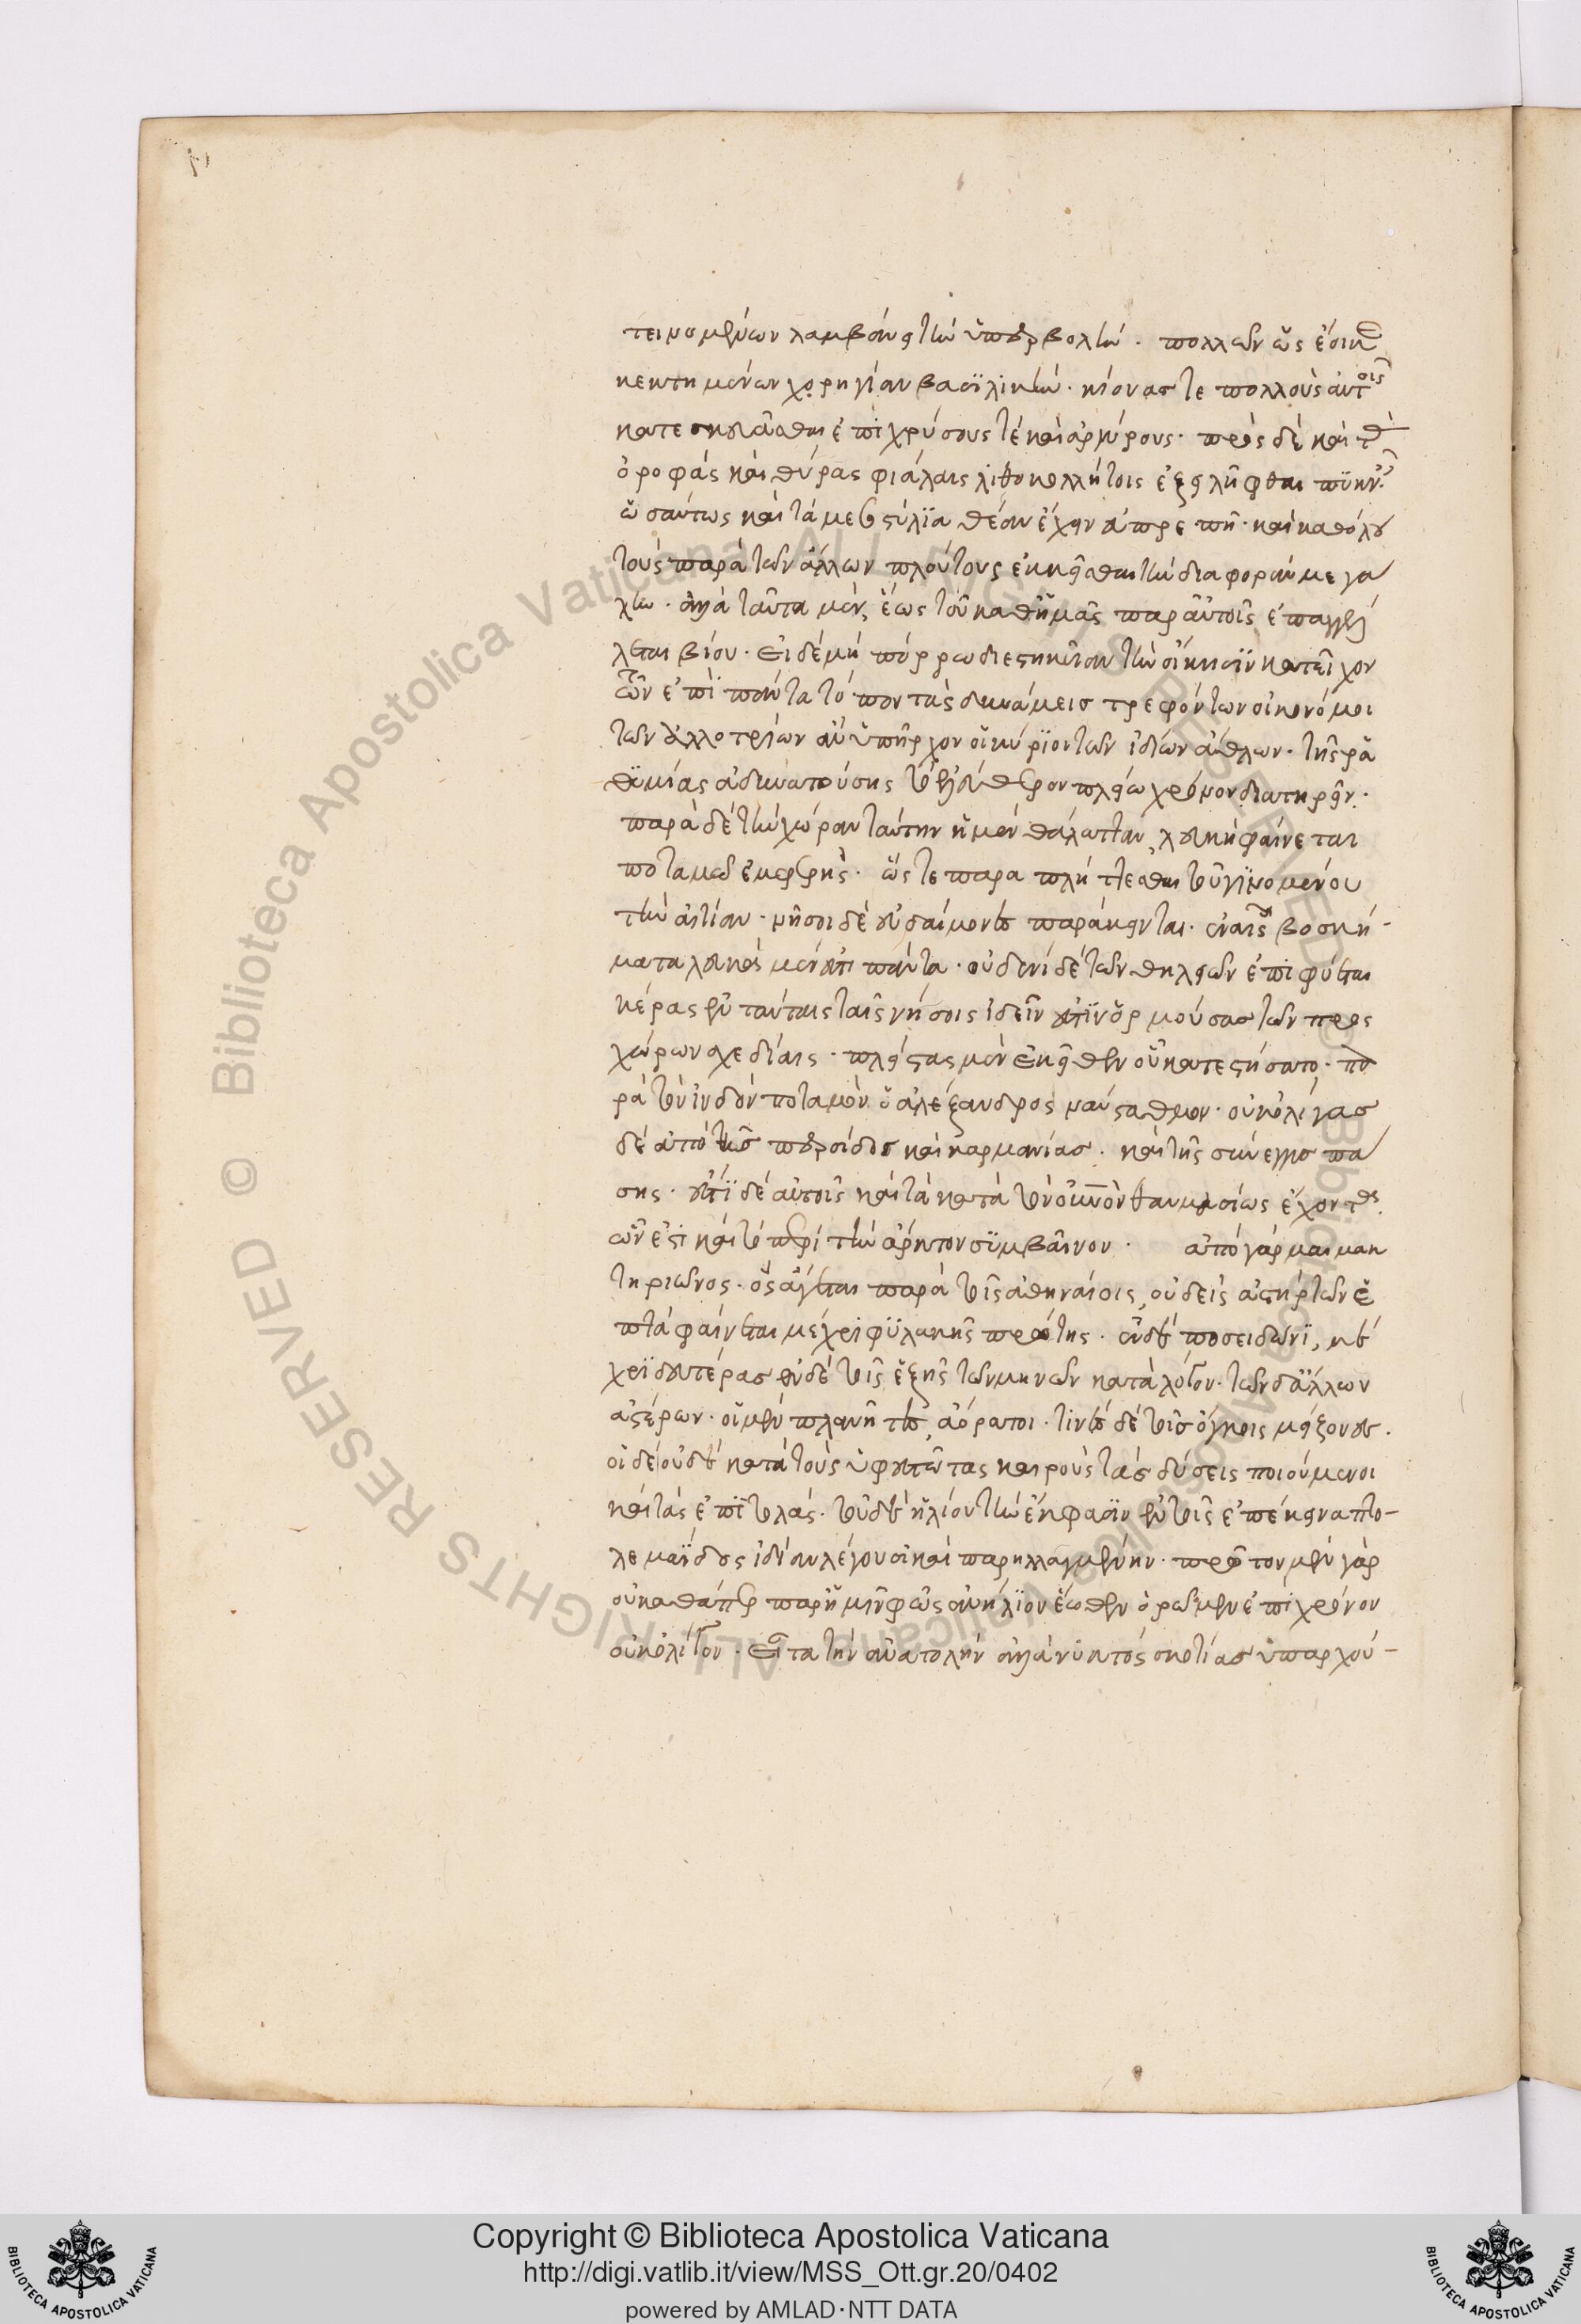 τεινομένων λαμβάνει τὴν ὑπερβολήν. πολλῶν ὡς ἔοικεν
κεκτημένων χορηγίαν βασιλικήν. κίονάς τε πολλοὺς αὐτοῖς
κατεσκευᾶσθαι ἐπιχρύσους τὲ καὶ ἀργύρους. πρὸς δὲ καὶ τὰς
ὀροφὰς καὶ θύρας φιάλαις λιθοκολλήτοις ἐξειλῆφθαι πυκναῖς.
ὡσαύτως καὶ τὰ μεσοστύλια θέαν ἔχειν εὐπρεπῆ. καὶ καθόλου
τοὺς παρὰ τῶν ἄλλων πλούτους ἐκκεῖσθαι τὴν διαφορὰν μεγά
λην. ἀλλὰ ταῦτα μὲν, ἕως τοῦ καθ' ἡμᾶς παρ' αὐτοῖς ἐπαγγέλ
λεται βίου. εἰ δὲ μὴ πόρρω διεστηκυῖαν τὴν οἴκησιν κατεῖχον
τῶν ἐπὶ πάντα τόπον τὰς δυνάμεις τρεφόντων οἰκονόμοι
τῶν ἀλλοτρίων ἂν ὑπῆρχον οἱ κύριοι τῶν ἰδίων ἄθλων. τῆς ρᾳ
θυμίας ἀδυνατούσης τὸ ἐλεύθερον πλείω χρόνον διατηρεῖν.
παρὰ δὲ τὴν χώραν ταύτην ἡ μὲν θάλαττα, λευκὴ φαίνεται
ποταμῷ ἐμφερής. ὥστε παραπλήττεσθαι τοῦ γινομένου
τὴν αἰτίαν. νῆσοι δὲ εὐδαίμονες παράκεινται. ἐν αἷς βοσκή-
ματα λευκὰ μέν ἐστι πάντα. οὐδενὶ δὲ τῶν θηλειῶν ἐπιφύεται
κέρας ἐν ταύταις ταῖς νήσοις ἰδεῖν ἔστιν ὁρμούσας τῶν προς
χώρων σχεδίαις. πλείστας μὲν ἐκεῖθεν οὗ κατεστήσατο. πα
ρὰ τὸν ἰνδὸν ποταμὸν ὁ ἀλέξανδρος ναύσταθμον. οὐκ ὀλίγας
δὲ ἀπὸ τῆς περσίδος καὶ καρμανίας. καὶ τῆς σύνεγγυς πά
σης. ἔστι δὲ αὐτοῖς καὶ τὰ κατὰ τὸν οὐνὸν θαυμασίως ἔχοντα
ὧν ἐστι καὶ τὸ περὶ τὴν ἄρκτον συμβαῖνον. ἀπὸ γὰρ μαιμακ
τηριῶνος. ὃς ἄγεται παρὰ τοῖς ἀθηναίοις, οὐδεὶς ἀστὴρ τῶν ἑ
πτὰ φαίνεται μέχρι φυλακῆς πρώτης. ἐν δὲ ποσειδῶνι, μέ
χρι δευτέρας ἐν δὲ τοῖς ἑξῆς τῶν μηνῶν κατὰ λόγον. τῶν δ' ἄλλων
ἀστέρων. οἱ μὲν πλανῆτες, ἀόρατοι. τινὲς δὲ τοῖς ὄγκοις μείζονες.
οἱ δὲ οὐδὲ κατὰ τοὺς ὑφεστῶτας καιροὺς τὰς δύσεις ποιούμενοι
καὶ τὰς ἐπιτολάς. τοῦ δὲ ἡλίου τὴν ἔκφασιν ἐν τοῖς ἐπέκεινα πτο-
λεμαΐδος ἰδίαν λέγουσι καὶ παρηλλαγμένην. πρῶτον μὲν γὰρ
οὐ καθάπερ παρ' ἡμῖν φῶς οὐχ ἡλίου ἕωθεν ὁρῶμεν ἐπὶ χρόνον
οὐκ ὀλίγον. εἶτα τὴν ἀνατολὴν ἀλλὰ νυκτὸς σκοτίας ὑπαρχού-
Copyright © Biblioteca Apostolica Vaticana
http://digi.vatlib.it/view/MSS_Ott.gr.20/0402
powered by AMLAD·NTT DATA